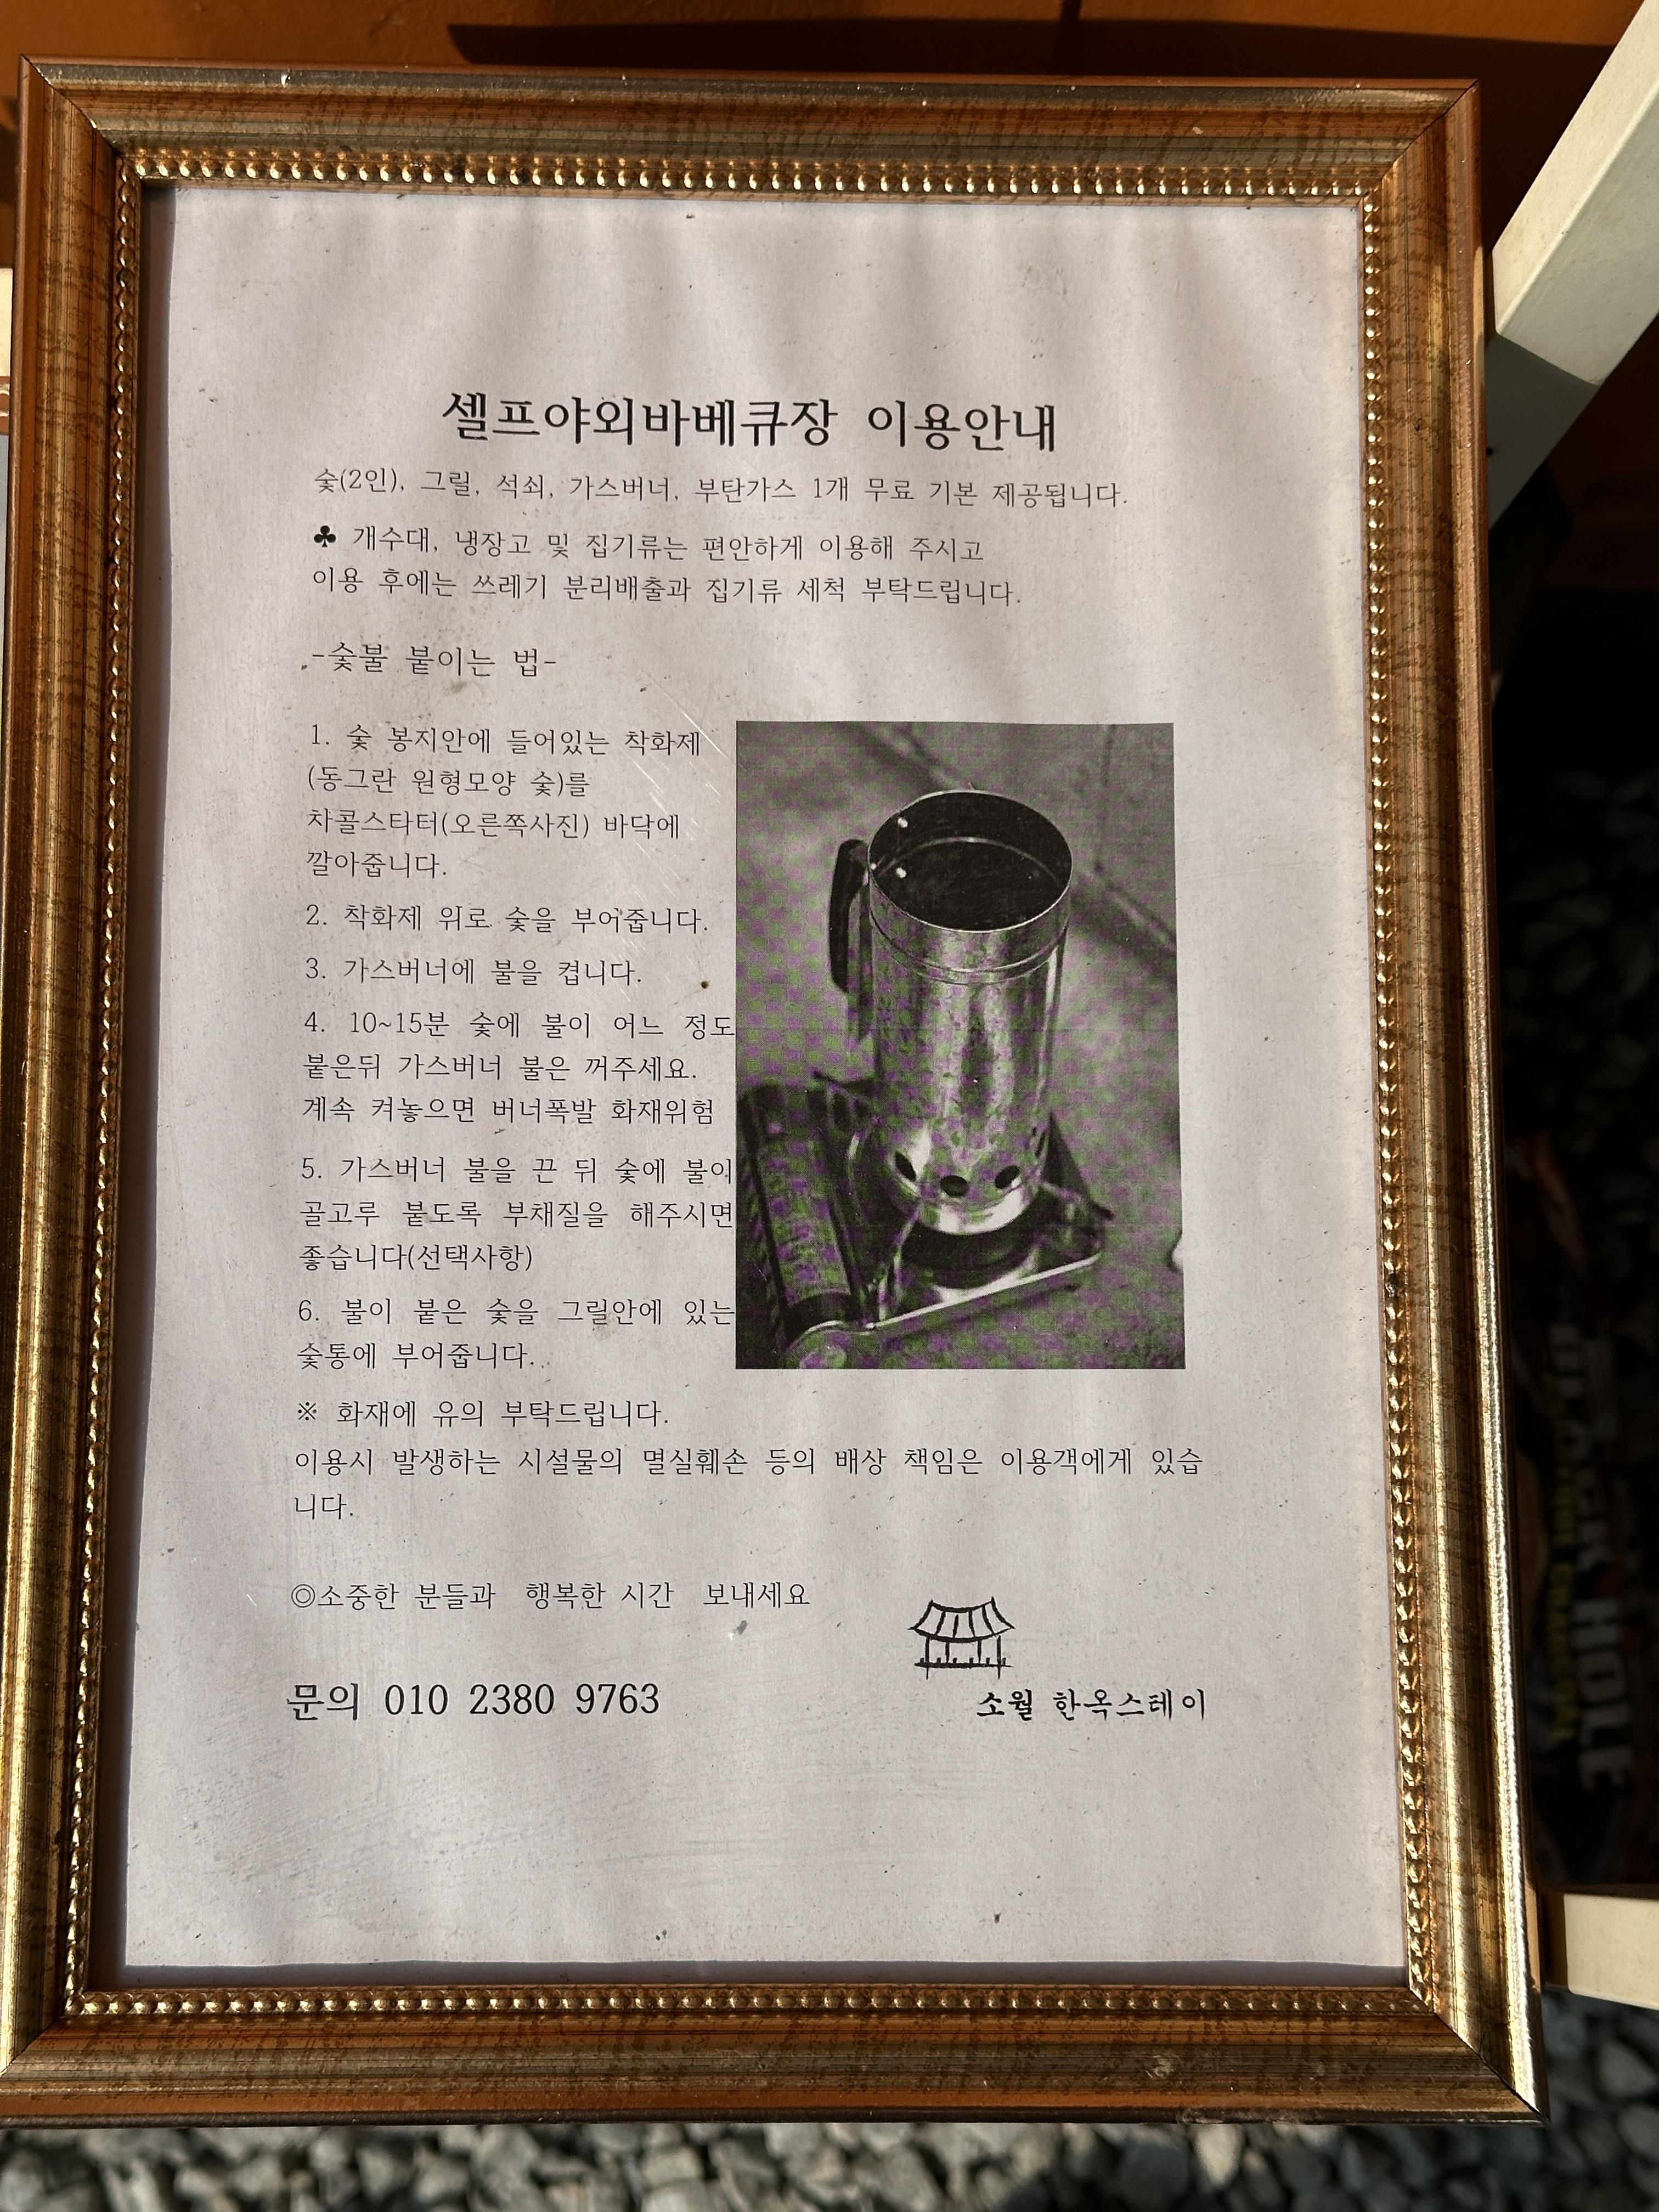 셀프야외바베큐장 이용안내
숯(2인), 그릴, 석쇠, 가스버너, 부탄가스 1개 무료 기본 제공됩니다.
♣ 개수대, 냉장고 및 집기류는 편안하게 이용해 주시고
이용 후에는 쓰레기 분리배출과 집기류 세척 부탁드립니다.
-숯불 붙이는 법-
1. 숯 봉지안에 들어있는 착화제
(동그란 원형모양 숯)를
차콜스타터(오른쪽사진) 바닥에
깔아줍니다.
2. 착화제 위로 숯을 부어줍니다.
3. 가스버너에 불을 켭니다.
4. 10~15분 숯에 불이 어느 정도
붙은뒤 가스버너 불은 꺼주세요.
계속 켜놓으면 버너폭발 화재위험
5. 가스버너 불을 끈 뒤 숯에 불이
골고루 붙도록 부채질을 해주시면
좋습니다(선택사항)
6. 불이 붙은 숯을 그릴안에 있는
숯통에 부어줍니다.
※ 화재에 유의 부탁드립니다.
이용시 발생하는 시설물의 멸실훼손 등의 배상 책임은 이용객에게 있습
니다.
◎소중한 분들과 행복한 시간 보내세요
문의 010 2380 9763
소월 한옥스테이
HOLE